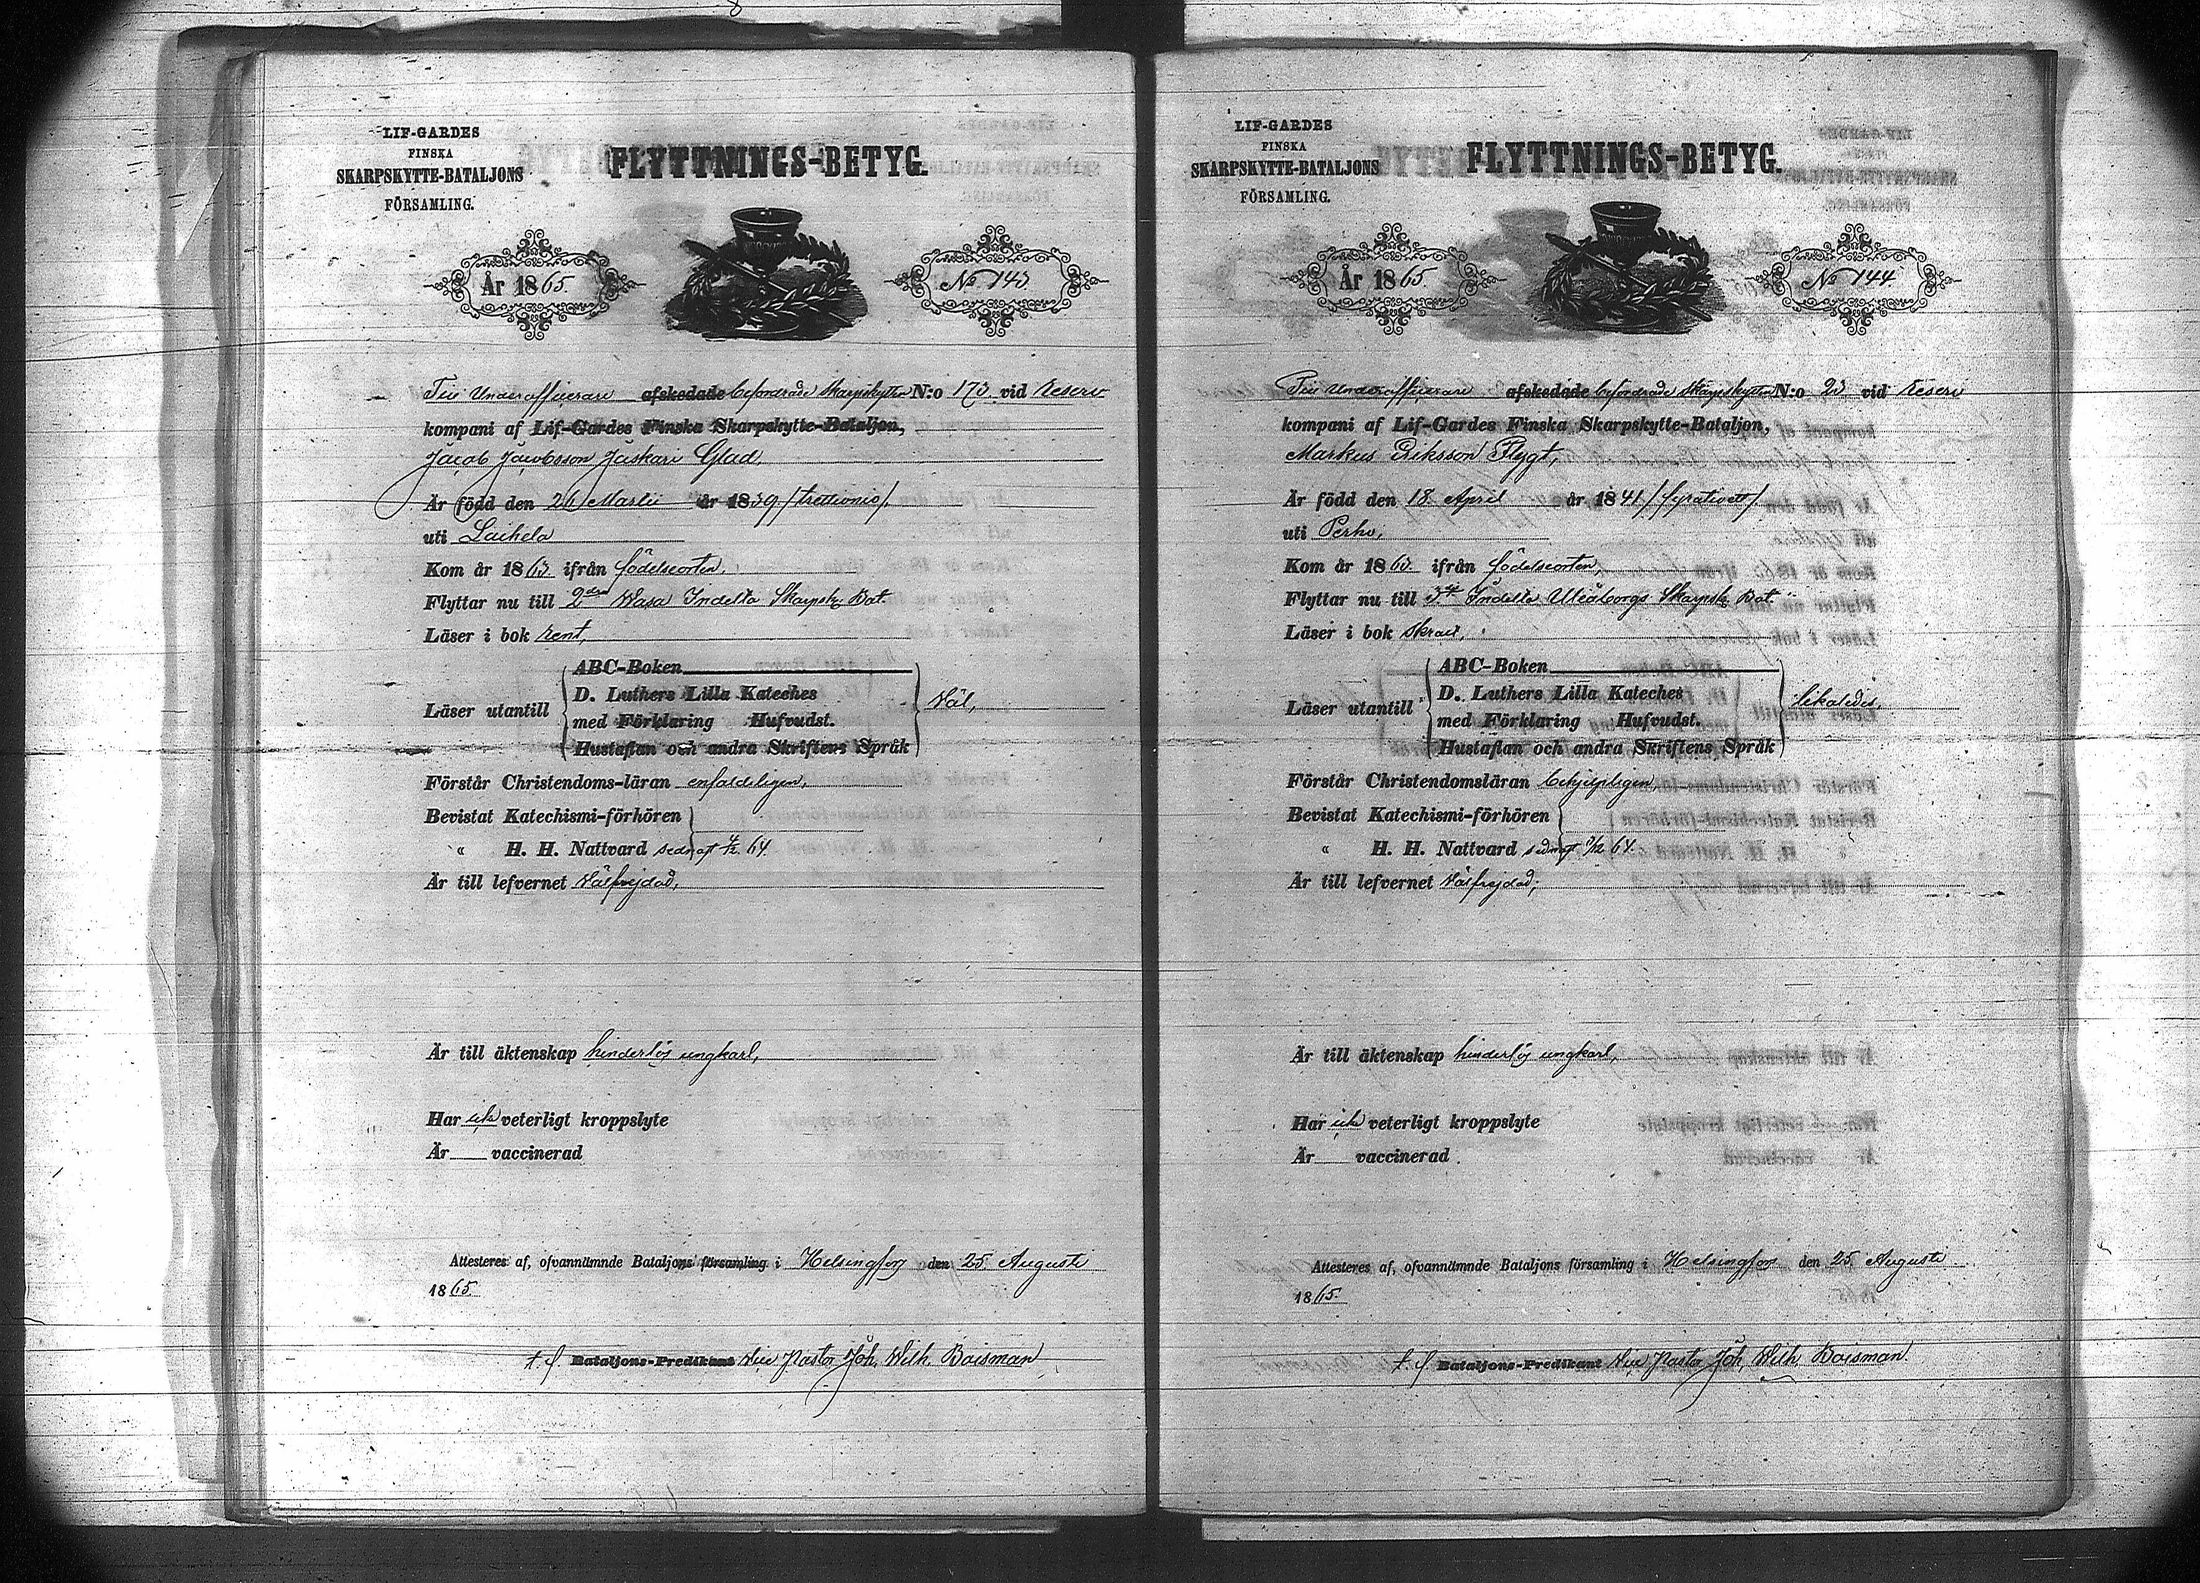 LIF-GARDES
FINSKA
SKARPSKYTTE-BATALJONS
FÖRSAMLING.
FLYTTNINGS-BETYG.
År 1865.
No 143.
Till Underofficerare afskedade befordrade Skarpskytten N:o 173 vid Reserv
kompani af Lif-Gardes Finska Skarpskytte-Bataljon,
Jacob Jacobsson Juskari Glad,
Är född den 26 Martii år 1839 /trettionio/.
uti Laihela
Kom år 1863 ifrån födelseorten,
Flyttar nu till 2dra Wasa Indelta Skarpsk. Bat.
Läser i bok rent,
Läser utantill
ABC-Boken
D. Luthers Lilla Kateches
med Förklaring Hufvudst.
Hustaflan och andra Skriftens Språk
väl,
Förstår Christendoms-läran enfaldeligen,
Bevistat Katechismi-förhören
" H. H. Nattvard sednast 4/12 64.
Är till lefvernet välfrejdad,
Är till äktenskap hinderlös ungkarl,
Har ick veterligt kroppslyte
Är vaccinerad
Attesteres af, ofvannämnde Bataljons församling i Helsingfors den 25 Augusti
1865.
t. f. Bataljons-Predikant Vice Pastor Joh. Wilh. Boisman
LIF-GARDES
FINSKA
SKARPSKYTTE-BATALJONS
FÖRSAMLING.
FLYTTNINGS-BETYG.
År 1865.
No 144.
Till Underofficerare afskedade befordrade Skarpskytten N:o 23 vid Reserv
kompani af Lif-Gardes Finska Skarpskytte-Bataljon,
Markus Eriksson Flygt,
Är född den 18 April år 1841 /fyratiett/.
uti Perho,
Kom år 1863 ifrån födelseorten,
Flyttar nu till 3. Indelta Uleåborgs Skarpsk. Bat.
Läser i bok skral,
Läser utantill
ABC-Boken
D. Luthers Lilla Kateches
med Förklaring Hufvudst.
Hustaflan och andra Skriftens Språk
likaledes,
Förstår Christendomsläran behjelpligen,
Bevistat Katechismi-förhören
" H. H. Nattvard sednast /12 64.
Är till lefvernet välfrejdad,
Är till äktenskap hinderlös ungkarl,
Har ick veterligt kroppslyte
Är vaccinerad
Attesteres af, ofvannämnde Bataljons församling i Helsingfors den 25 Augusti
1865.
t. f. Bataljons-Predikant Vice Pastor Joh. Wilh. Boisman